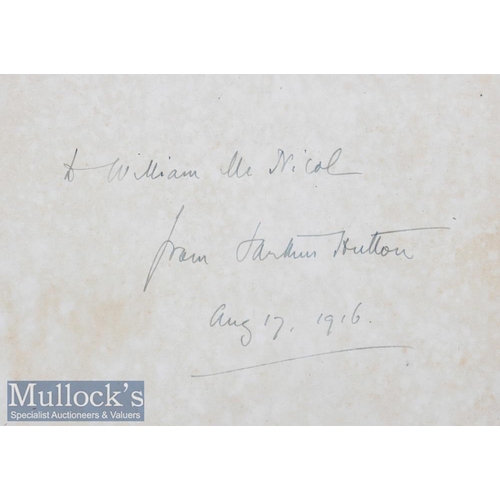 to William McNicol
from Hutton
Aug 17, 1916.
Mullock's
Specialist Auctioneers & Valuers